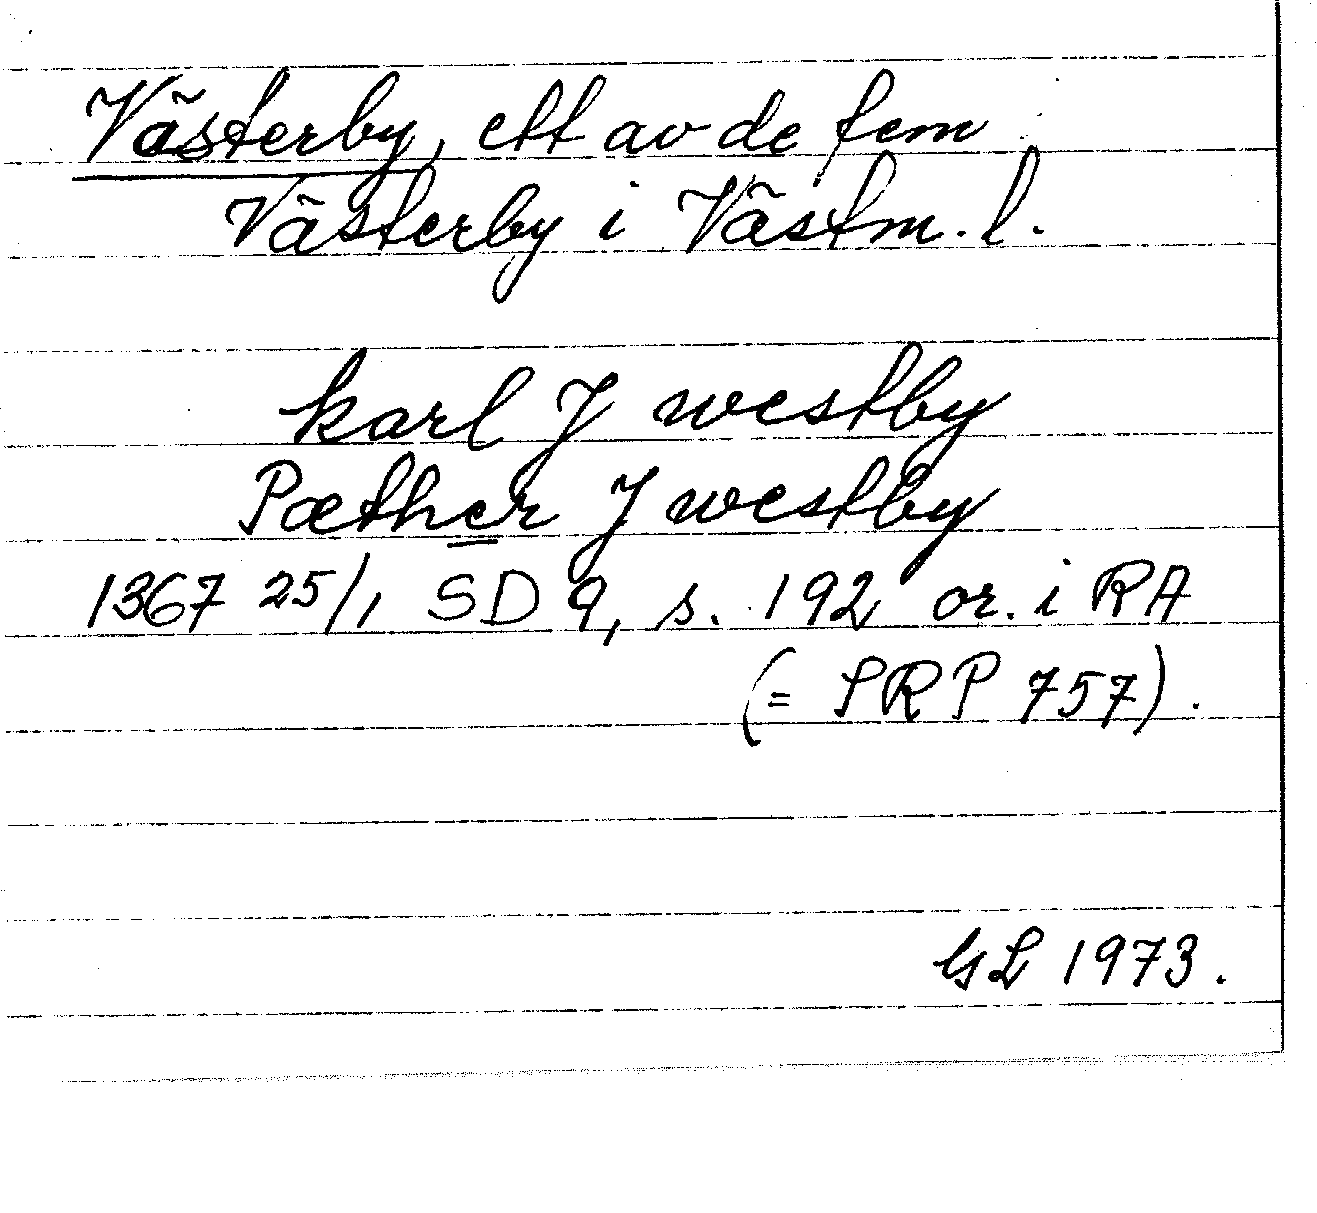 Västerby, ett av de fem
Västerby i Västm. l.
karl J westby
Pæther J westby
1367 25/1 SD 9, s. 192 or. i RA
(= SRP 757).
GL 1973.